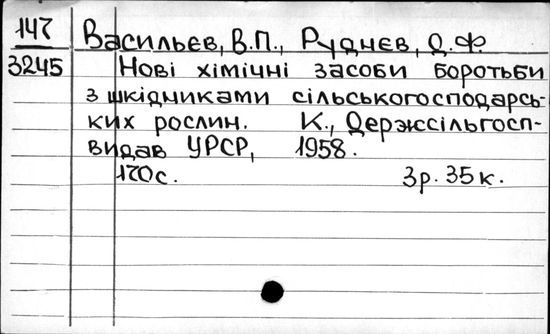 147 Васильєв, В.П., Руднєв, Д.Ф.
3245 Нові хімічні засоби боротьби
з шкідниками сільськогосподарсь-
ких рослин. К., Держсільгосп-
видав УРСР, 1958.
170с. 3р. 35к.